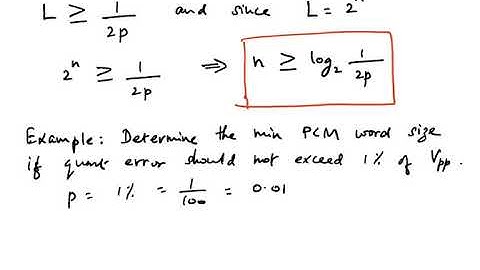 L ≥ 1/2p and since L = 2^n
2^n ≥ 1/2p ⇒ n ≥ log₂ 1/2p
Example: Determine the min PCM word size
if quant error should not exceed 1% of Vpp.
p = 1% = 1/100 = 0.01